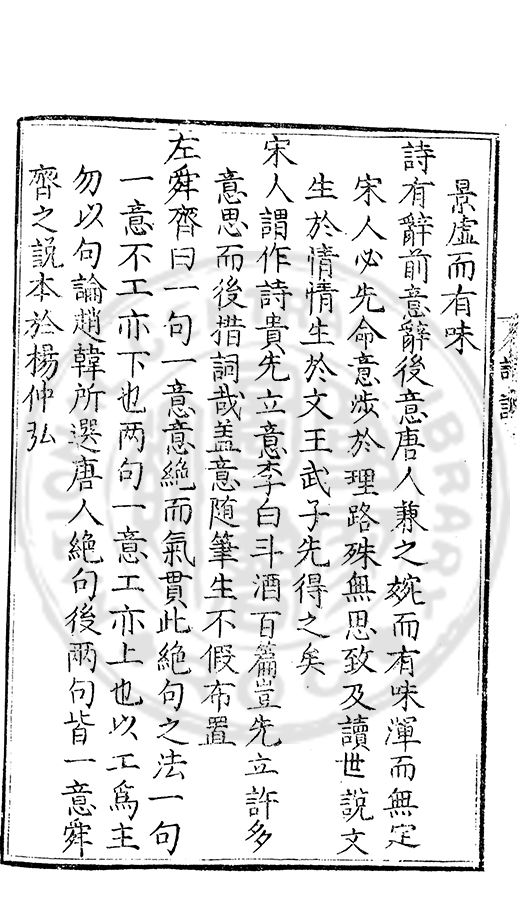 景虛而有味
詩有辭前意辭後意唐人兼之婉而有味渾而無定
宋人必先命意涉於理路殊無思致及讀世說文
生於情情生於文王武子先得之矣
宋人謂作詩貴先立意李白斗酒百篇豈先立許多
意思而後措詞哉盖意隨筆生不假布置
左舜齊曰一句一意意絶而氣貫此絶句之法一句
一意不工亦下也两句一意工亦上也以工爲主
勿以句論趙韓所選唐人絶句後兩句皆一意舜
齊之說本於楊仲弘